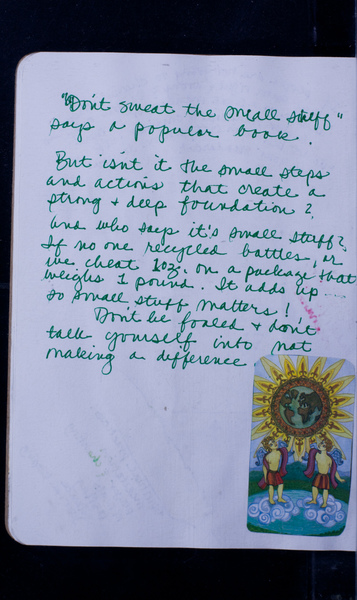 "Don't sweat the small stuff"
says a popular book.
But isn't it the small steps
and actions that create a
strong + deep foundation?
And who says it's small stuff?
If no one recycled bottles, or
we cheat 1oz. on a package that
weighs 1 pound. It adds up....
so small stuff matters!!
Don't be fooled + don't
talk yourself into not
making a difference